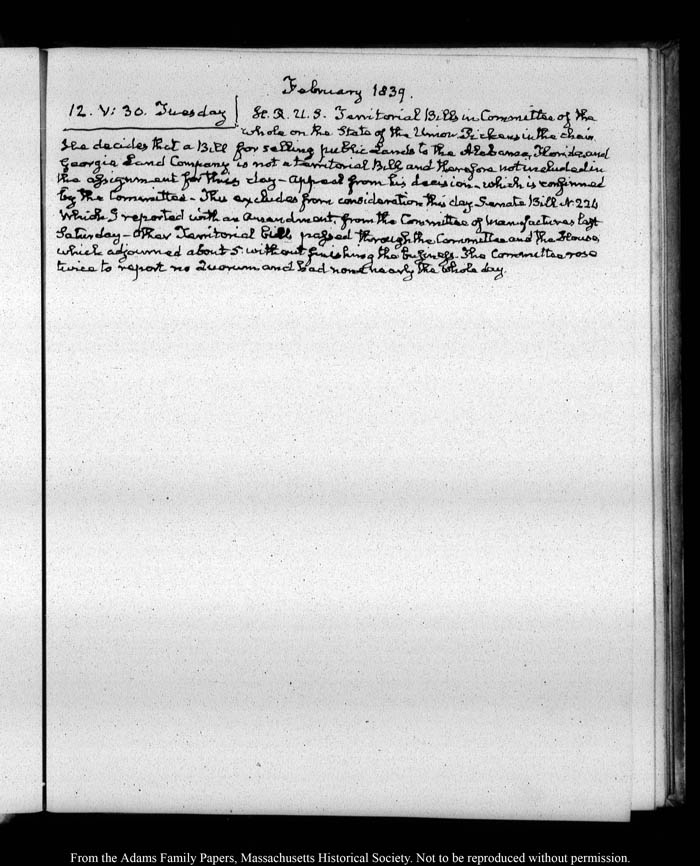 February 1839.
12. V: 30. Tuesday
H. R. U. S. Territorial Bills in Committee of the
whole on the State of the Union. Pickens in the chair
He decides that a Bill for selling public Lands to the Alabama, Florida, and
Georgia Land Company is not a territorial Bill and therefore not included in
the assignment for this day - appeal from his decision - which is confirmed
by the Committee - This excludes from consideration this day Senate Bill N. 224
which I reported with an Amendment, from the Committee of Manufactures last
Saturday - Other Territorial Bills passed through the Committee and the House,
which adjourned about 5 without finishing the business. The Committee rose
twice to report no Quorum and had none nearly the whole day.
From the Adams Family Papers, Massachusetts Historical Society. Not to be reproduced without permission.